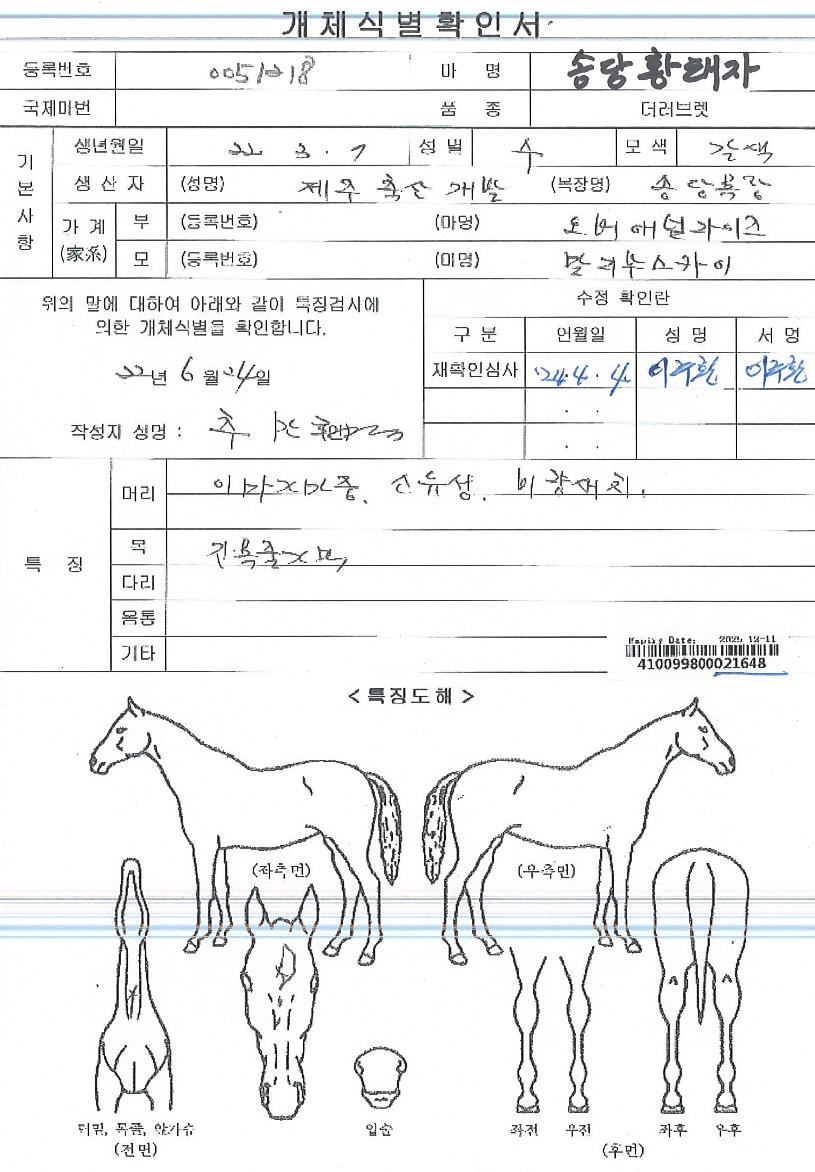 개체식별확인서
등록번호 0051218 마 명 송당황태자
국제마번 품 종 더러브렛
기본사항
생년월일 22 3. 7 성별 수 모색 갈색
생산자 (성명) 제주축산개발 (목장명) 송당목장
가계(家系) 부 (등록번호) (마명) 오버애널라이즈
모 (등록번호) (마명) 말리부스카이
위의 말에 대하여 아래와 같이 특징검사에
의한 개체식별을 확인합니다.
22년 6월 24일
작성자 성명 : 추
수정 확인란
구분 연월일 성명 서명
재확인심사 '24. 4. 4.
특 징
머리 이마 중, 유성. 비량 .
목
다리
몸통
기타
Expiry Date: 2025-12-11
410099800021648
< 특징도해 >
(좌측면) (우측면)
턱밑, 목줄, 앞가슴 입술 좌전 우전 좌후 우후
(전면) (후면)